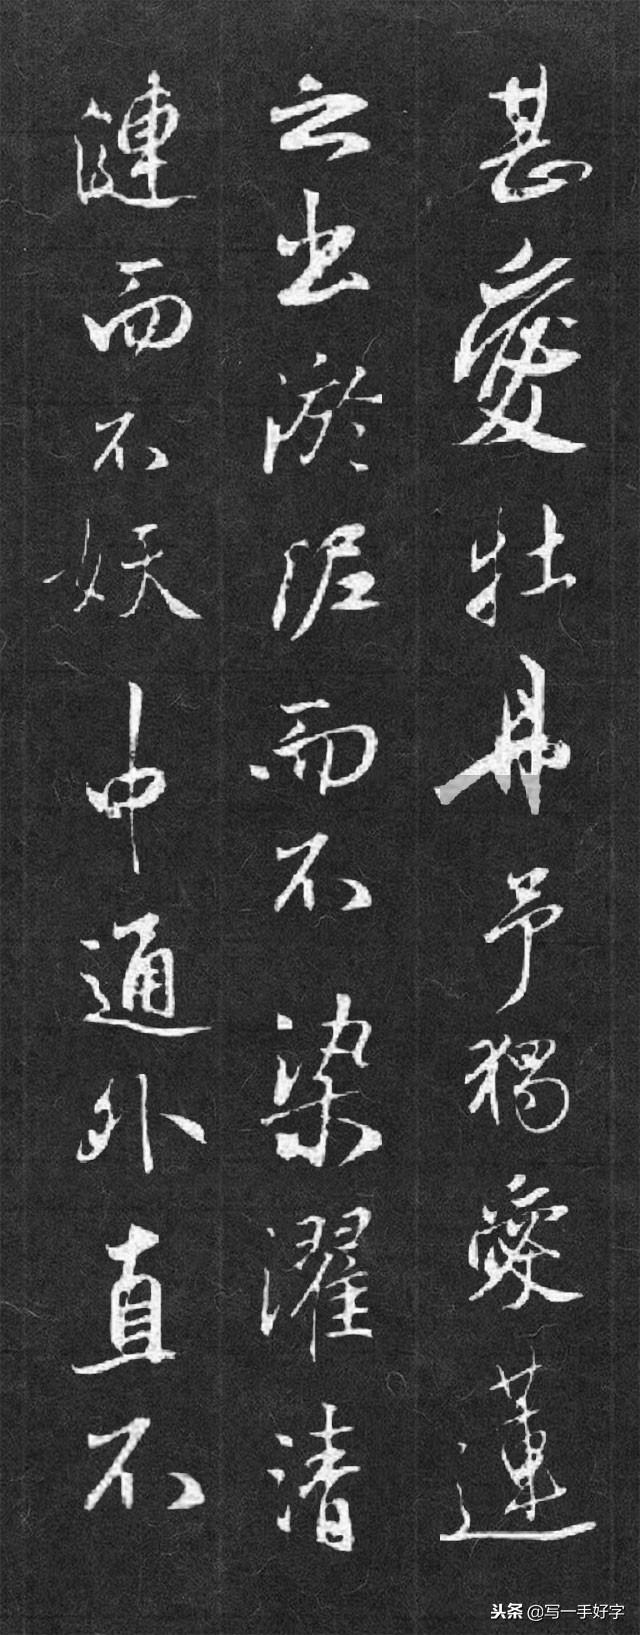 甚愛牡丹予獨愛蓮
之出淤泥而不染濯清
漣而不妖中通外直不
头条 @写一手好字